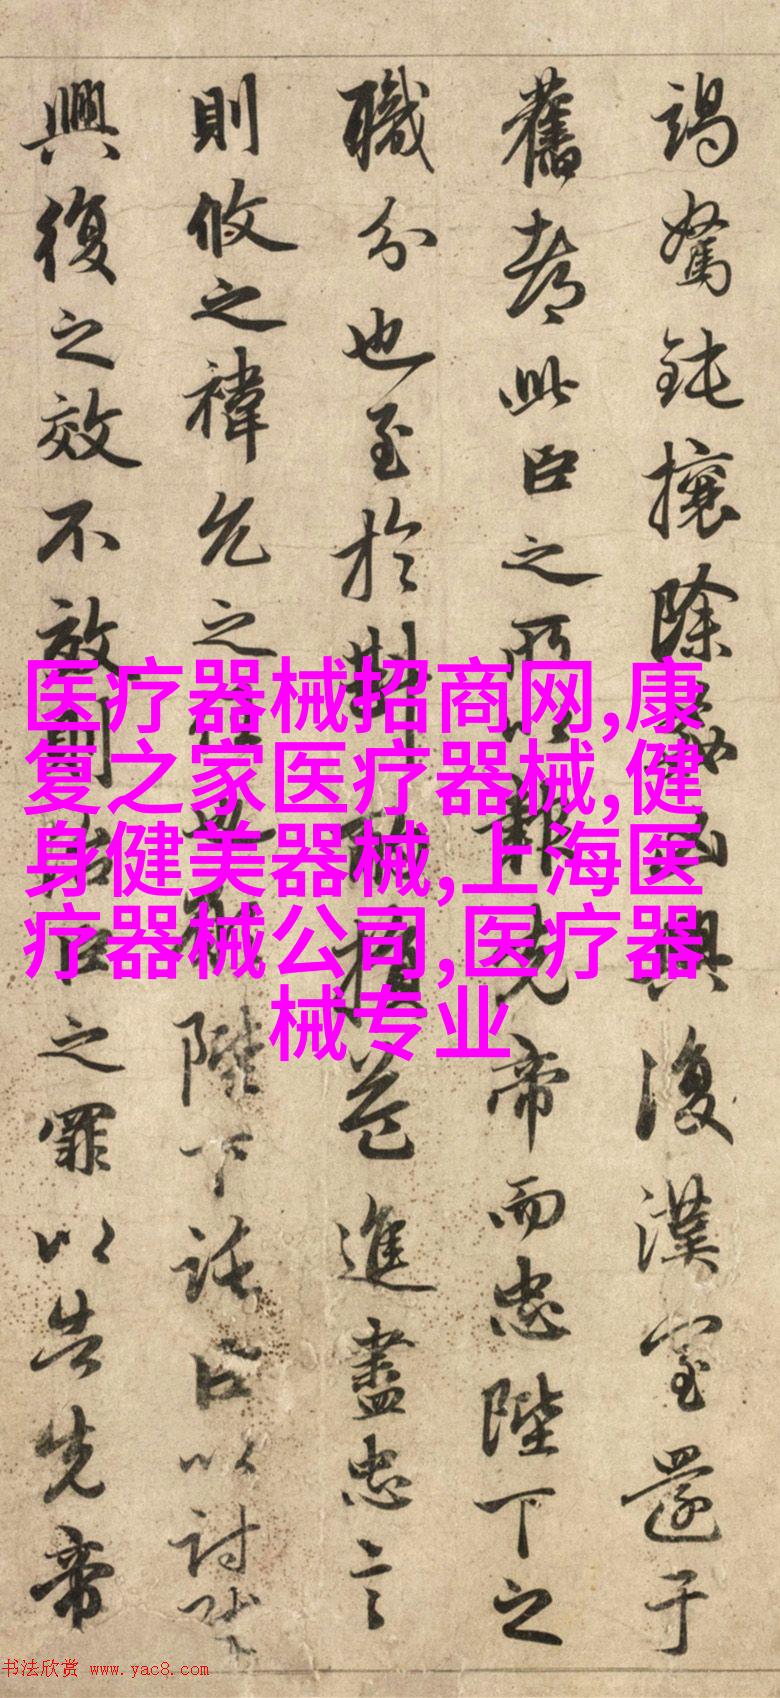 竭駑鈍攘除姦凶興復漢室還于
舊都此臣之所以報先帝而忠陛下之
職分也至於斟酌損益進盡忠言
則攸之禕允之任也願陛下託臣以討賊
興復之效不效則治臣之罪以告先帝
医疗器械招商网,康
复之家医疗器械,健
身健美器械,上海医
疗器械公司,医疗器
械专业
书法欣赏 www.yac8.com